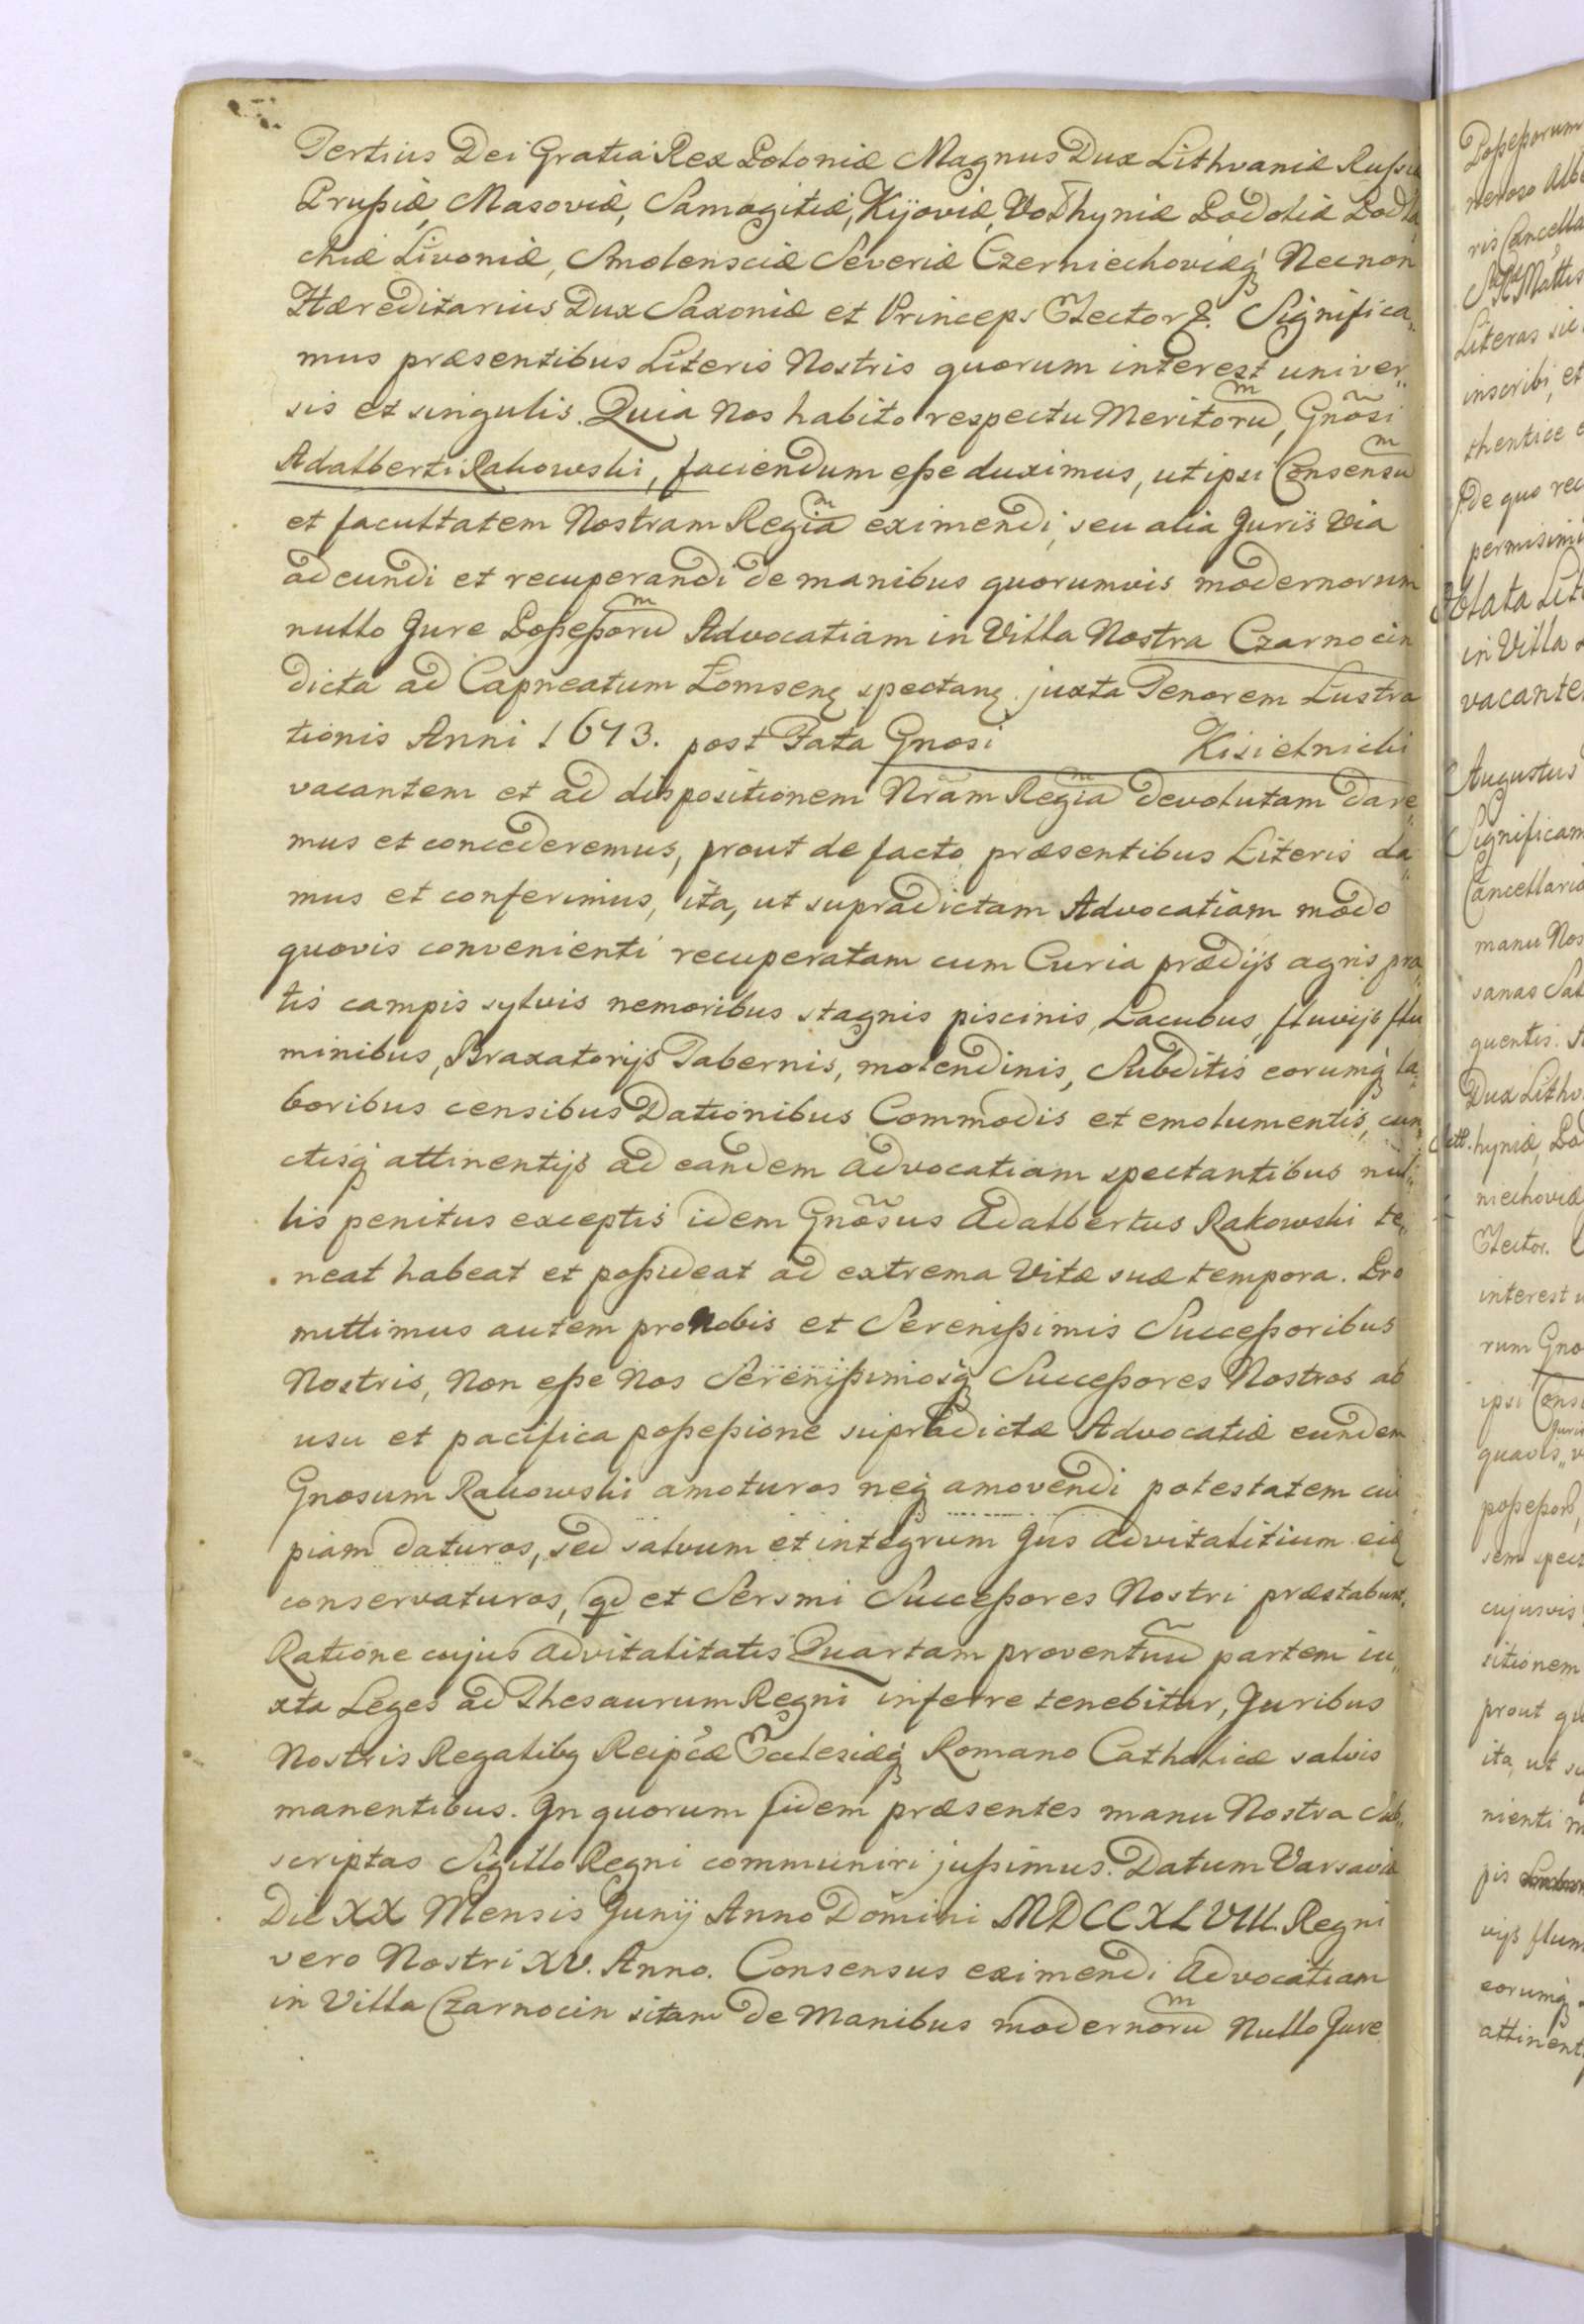 Tertius Dei Gratia Rex Poloniæ Magnus Dux Lithvaniæ Russiæ
Prussiæ, Masoviæ, Samogitiæ, Kijoviæ, Volhyniæ Podoliæ Podla,
chiæ Livoniæ, Smolensciæ Severiæ Czerniechoviæq́ Necnon
Hæreditarius Dux Saxoniæ et Princeps Elector &. Significa,,
mus præsentibus Literis Nostris quorum interest univer,,
sis et singulis. Quia Nos habito respectu Meritoru͞m, Gnõsi
Adalberti Rakowski, faciendum esse duximus, ut ipsi Consensu͞m
et facultatem Nostram Regia͞m eximendi, seu alia Juris Via
adeundi et recuperandi de manibus quorumvis modernorum
nullo Jure Possessoru͞m Advocatiam in Villa Nostra Czarnocin
dicta ad Capneatum Łomsenȩ spectanȩ juxta Tenorem Lustra
tionis Anni 1673. post Fata Gnosi Kisielnicki
vacantem et ad dispositionem Nr̃am Regia͞m devolutam dare,,
mus et concederemus, prout de facto præsentibus Literis da,,
mus et conferimus, ita, ut supradictam Advocatiam modo
quovis convenienti recuperatam cum Curia prædijs agris pra,
tis campis sylvis nemoribus stagnis piscinis, Lacubus, fluvijs flu
minibus, Braxatorijs Tabernis, molendinis, Subditis eorumq́ la,
boribus censibus Dationibus Commodis et emolumentis, cun,
ctisq́ attinentijs ad eandem advocatiam spectantibus nul,,
lis penitus exceptis idem Gnõsus Adalbertus Rakowski te,,
neat habeat et possideat ad extrema Vitæ suæ tempora. Pro
mittimus autem pro Nobis et Serenissimis Successoribus
Nostris, Non esse Nos Serenissimosq́ Successores Nostros ab
usu et pacifica possessione supradictæ Advocatiæ eundem
Gnosum Rakowski amoturos neq́ amovendi potestatem cui
piam daturos, sed salvum et integrum Jus advitalitium eiȩ
conservaturos, qd et Sersmi Successores Nostri præstabunt.
Ratione cujus advitalitatis Quartam proventuũ partem iu,,
xta Leges ad Thesaurum Regni inferre tenebitur, Juribus
Nostris Regalibq Reipcæ Ecclesiæq́ Romano Catholicæ salvis
manentibus. In quorum fidem præsentes manu Nostra Sub,,
scriptas Sigillo Regni communiri jussimus. Datum Varsaviæ
Die XX Mensis Junij Anno Domini MDCCXLVIII. Regni
vero Nostri XV. Anno. Consensus eximendi Advocatiam
in Villa Czarnocin sitam de Manibus modernoru͞m Nullo Jure
Possessorum
neroso
ris Cancella
Literas
inscribi, et
thentice
De quo
permisimus
Oblata
in Villa
Augustus
Significam
Cancellaria
manu Nos
quentis.
Dux Lithv
hyniæ, Po
niechoviæ
Elector.
interest
rum Gno
ipsi
cujusvis
sitionem
prout
ita, ut
nienti
pis
eorumq́
attinent